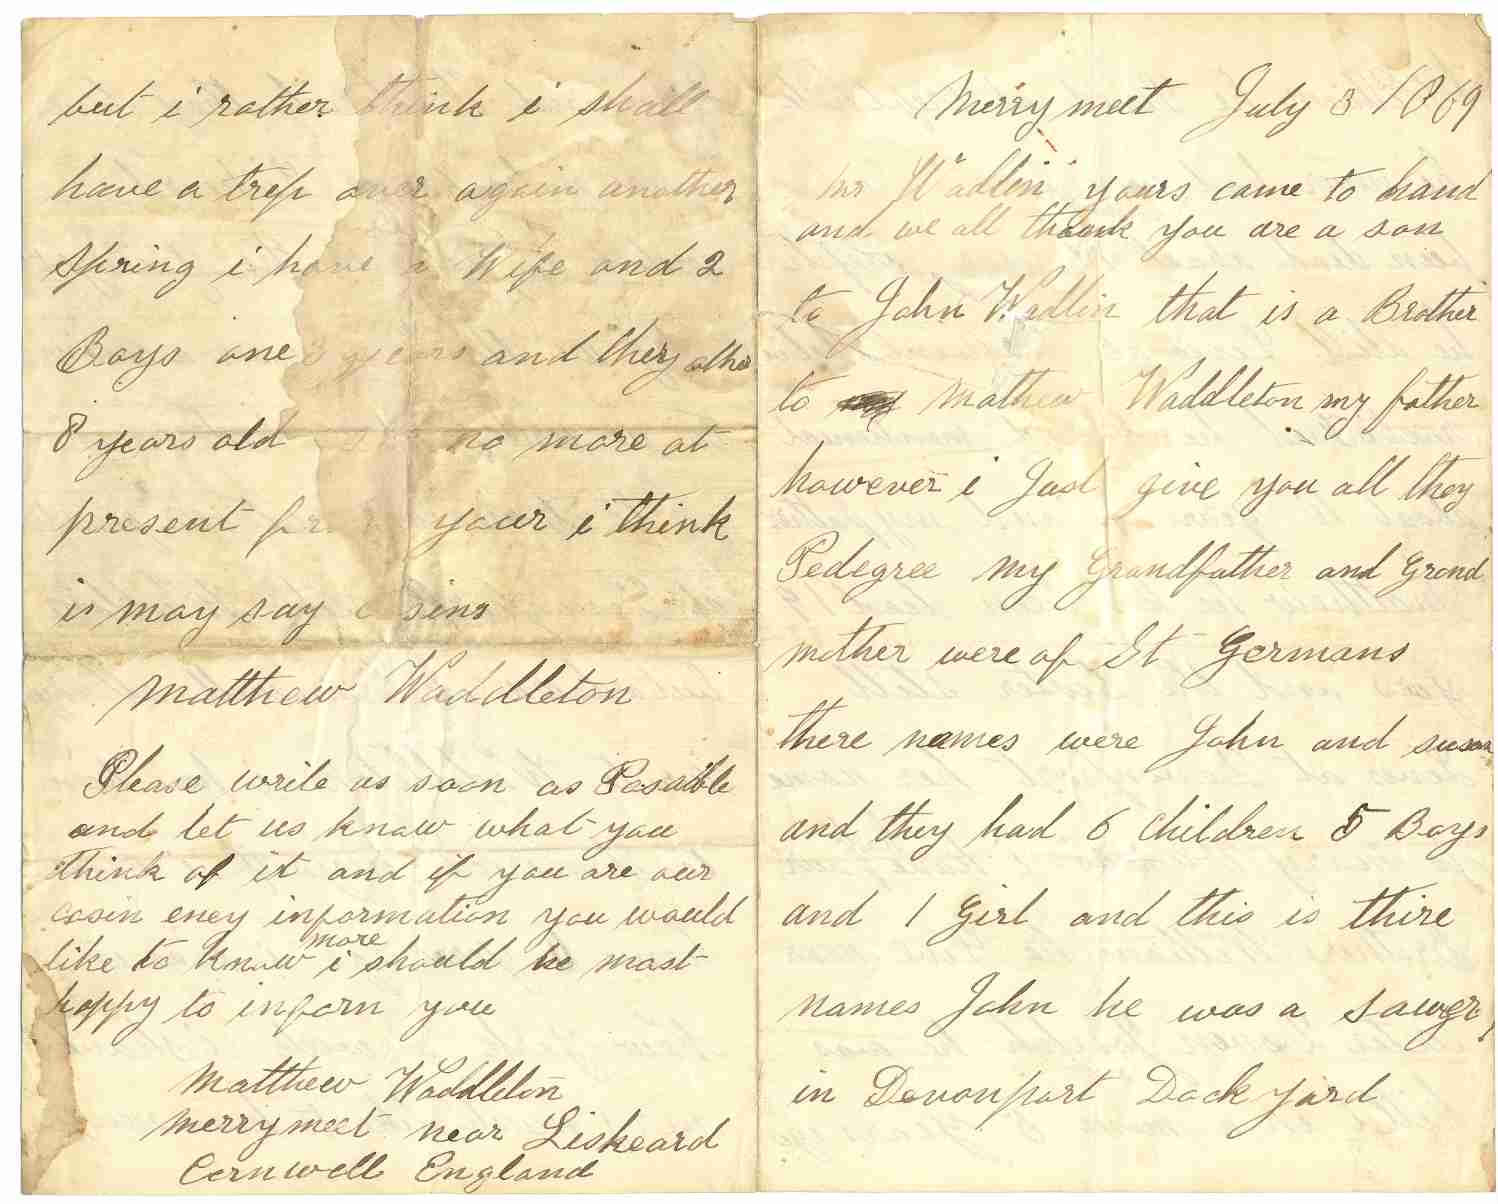 Merrymeet July 3 1869
Mr Wadlin yours came to hand
and we all thank you are a son
to John Wadlin that is a Brother
to Mathew Waddleton my father
however i Just give you all they
Pedegree my Grandfather and Grand
mother were of St Germans
there names were John and susan
and they had 6 Children 5 Boys
and 1 Girl and this is thire
names John he was a sawyer
in Devonport Dock yard
but i rather think i shall
have a trep over again another
spring i have a Wife and 2
Boys one years and they other
8 years old no more at
present your i think
i may say
Matthew Waddleton
Please write as soon as Posaible
and let us know what you
think of it and if you are our
cosin eney information you would
like to know more i should be most
happy to inforn you
Matthew Waddleton
Merrymeet near Liskeard
Cornwell England